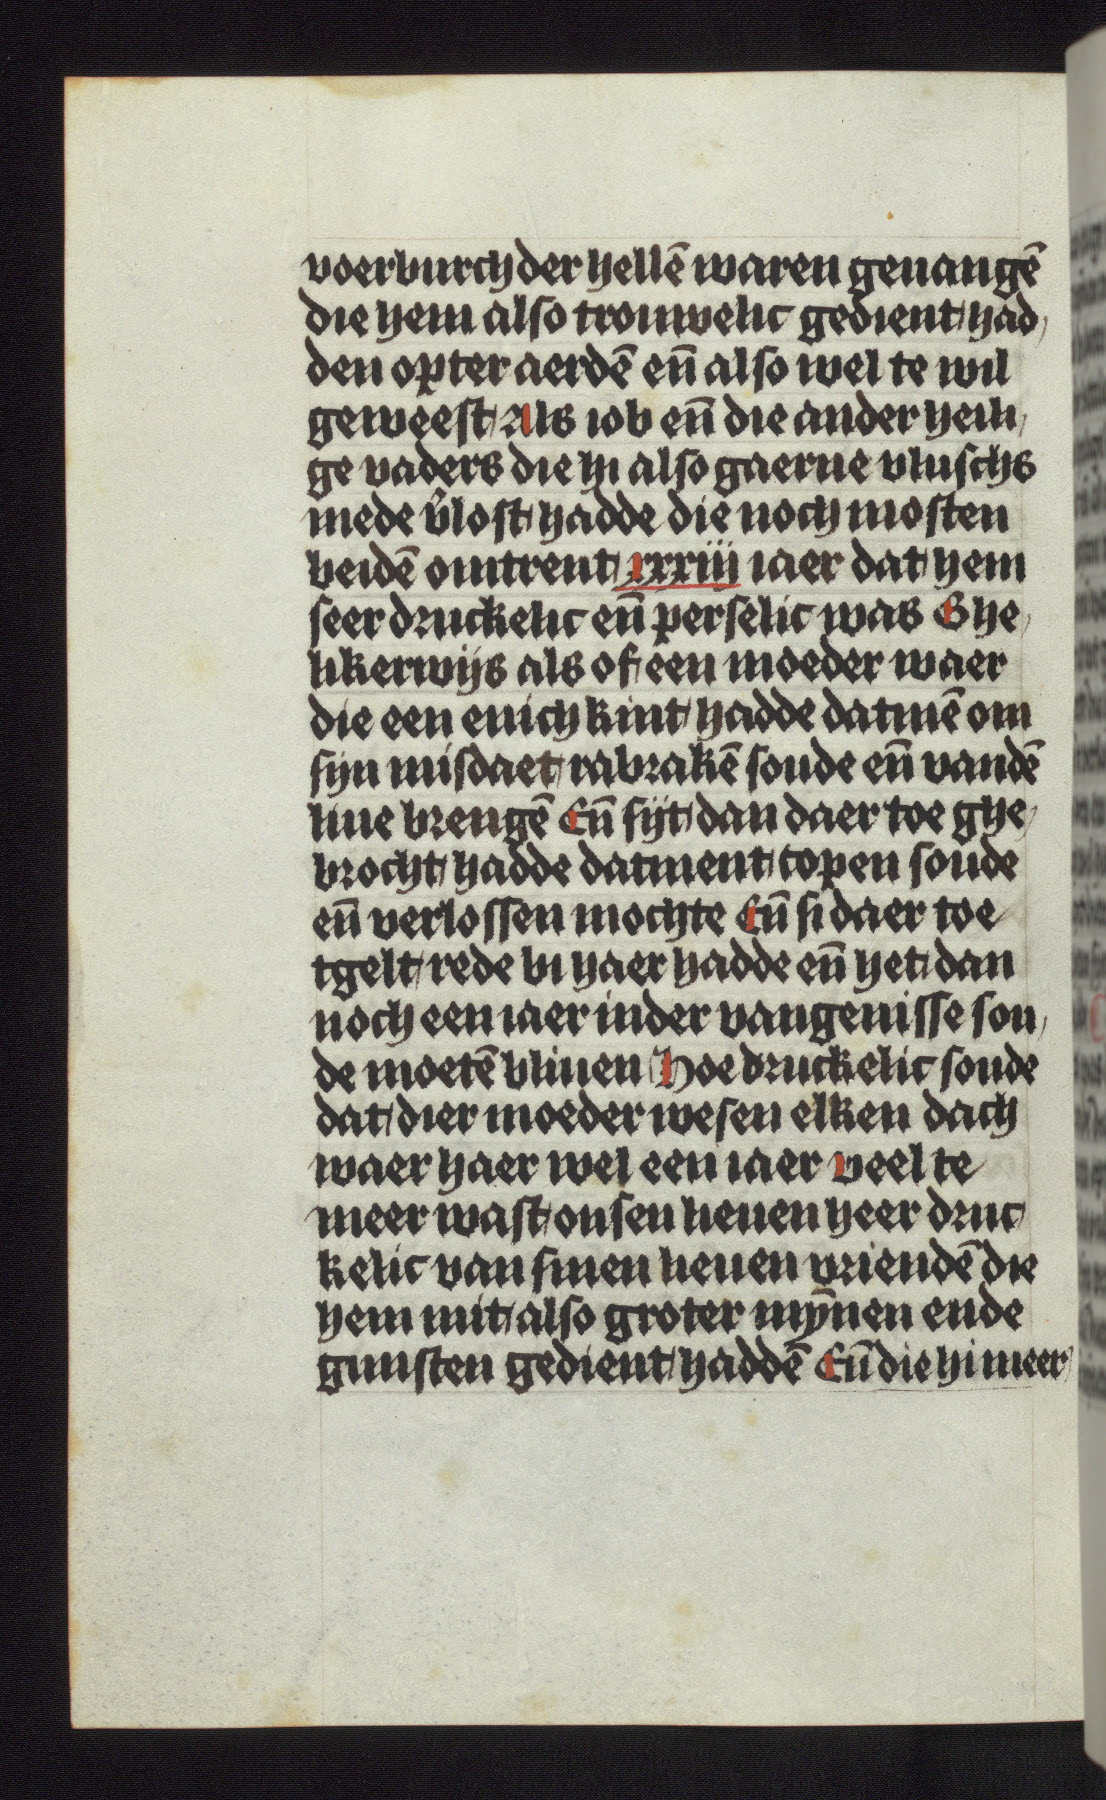 voerburch der hellē waren geuangē
die hem also trouwelic gedient had
den opter aerdē en̄ also wel te wil
geweest Als iob en̄ die ander heili
ge vaders die hi also gaerne vluschs
mede v̉lost hadde die noch mosten
beidē omtrent xxxiii iaer dat hem
seer druckelic en̄ perselic was Ghe
likerwijs als of een moeder waer
die een enich kint hadde datmē om
sijn misdaet rabrakē soude en̄ vandē
liue brengē En̄ sijt dan daer toe ghe
brocht hadde datment copen soude
en̄ verlossen mochte En̄ si daer toe
tgelt rede bi haer hadde en̄ het dan
noch een iaer inder vangenisse sou
de moetē bliuen Hoe druckelic soude
dat dier moeder wesen elken dach
waer haer wel een iaer Veel te
meer wast onsen lieuen heer druc
kelic van sinen lieuen vriendē die
hem mit also groter mȳnen ende
gunsten gedient haddē En̄ die hi meer